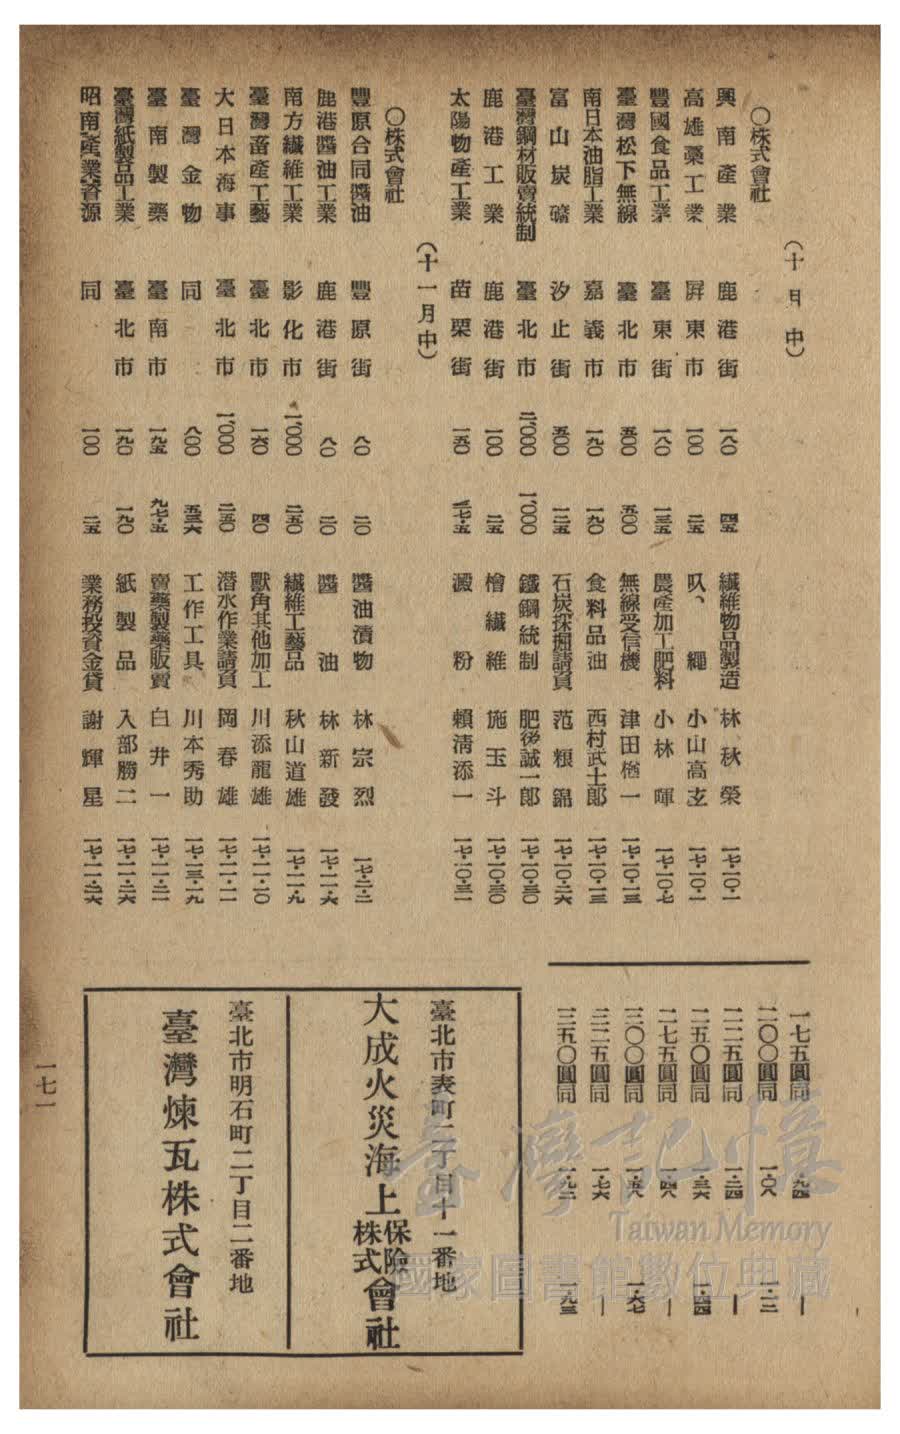 （十月中）
〇株式會社
興南產業　鹿港街　一八〇　四五　纖維物品製造　林秋榮　一七・一〇・一
高雄藁工業　屛東市　一〇〇　二五　叺、繩　小山高玄　一七・一〇・一
豐國食品工業　臺東街　一八〇　一三五　農產加工肥料　小林暉　一七・一〇・七
臺灣松下無線　臺北市　五〇〇　五〇〇　無線受信機　津田楢一　一七・一〇・一三
南日本油脂工業　嘉義市　一九〇　一九〇　食料品油　西村武士郞　一七・一〇・一三
富山炭礦　汐止街　五〇〇　一二五　石炭採掘請負　范根錦　一七・一〇・二六
臺灣鋼材販賣統制　臺北市　二、〇〇〇　一、〇〇〇　鐵鋼統制　肥後誠一郞　一七・一〇・三〇
鹿港工業　鹿港街　一〇〇　二五　檜纖維　施玉斗　一七・一〇・三〇
太陽物產工業　苗栗街　一五〇　三七・五　澱粉　賴淸添　一七・一〇・三一
（十一月中）
〇株式會社
豐原合同醬油　豐原街　八〇　二〇　醬油漬物　林宗烈　一七・一一・二
鹿港醬油工業　鹿港街　八〇　二〇　醬油　林新發　一七・一一・六
南方纖維工業　彰化市　一、〇〇〇　二五〇　纖維工藝品　秋山道雄　一七・一一・九
臺灣畜產工藝　臺北市　一六〇　四〇　獸角其他加工　川添龍雄　一七・一一・一〇
大日本海事　臺北市　一、〇〇〇　二五〇　潜水作業請負　岡春雄　一七・一一・一一
臺灣金物　同　八〇〇　五三六　工作工具　川本秀助　一七・一一・一九
臺南製藥　臺南市　一九五　九七・五　賣藥製藥販賣　白井一　一七・一一・二一
臺灣紙製品工業　臺北市　一九〇　一九〇　紙製品　入部勝二　一七・一一・二六
昭南產業資源　同　一〇〇　二五　業務投資金貸　謝輝星　一七・一一・二六
一七五圓同　・九四　｜
二〇〇圓同　一・〇八　一・二一
二二五圓同　一・二四　｜
二五〇圓同　一・三六　一・四四
二七五圓同　一・四八　｜
三〇〇圓同　一・五八　一・六七
三二五圓同　一・七六　｜
三五〇圓同　一・九二　一・九三
臺北市表町二丁目十一番地
大成火災海上保險株式會社
臺北市明石町二丁目二番地
臺灣煉瓦株式會社
一七一
臺灣記憶
Taiwan Memory
國家圖書館數位典藏